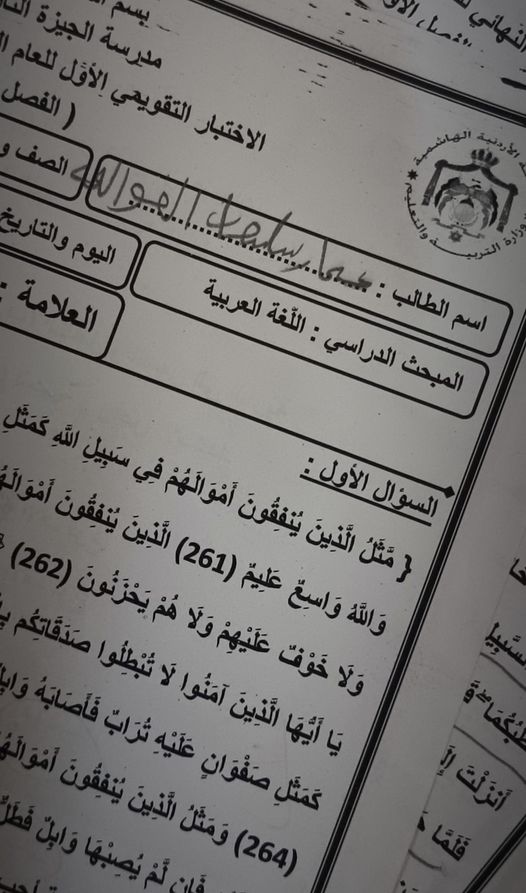 النهائي
الفصل الأو
بسم
مدرسة الجيزة الثا
الاختبار التقويمي الأوّل للعام
( الفصل
وزارة التربية والتعليم
الصف و
اسم الطالب :
اليوم والتاريخ
المبحث الدراسي : اللّغة العربية
العلامة :
السؤال الأول :
{ مَّثَلُ الَّذِينَ يُنْفِقُونَ أَمْوَالَهُمْ فِي سَبِيلِ اللَّهِ كَمَثَلِ
وَاللَّهُ وَاسِعٌ عَلِيمٌ (261) الَّذِينَ يُنْفِقُونَ أَمْوَالَهُ
وَلَا خَوْفٌ عَلَيْهِمْ وَلَا هُمْ يَحْزَنُونَ (262)
يَا أَيُّهَا الَّذِينَ آمَنُوا لَا تُبْطِلُوا صَدَقَاتِكُم بِ
كَمَثَلِ صَفْوَانٍ عَلَيْهِ تُرَابٌ فَأَصَابَهُ وَابِلٌ
(264) وَمَثَلُ الَّذِينَ يُنْفِقُونَ أَمْوَالَهُ
فَإِن لَّمْ يُصِبْهَا وَابِلٌ فَطَلٌّ
أَنْزَلْتَ
فَلَمَّا